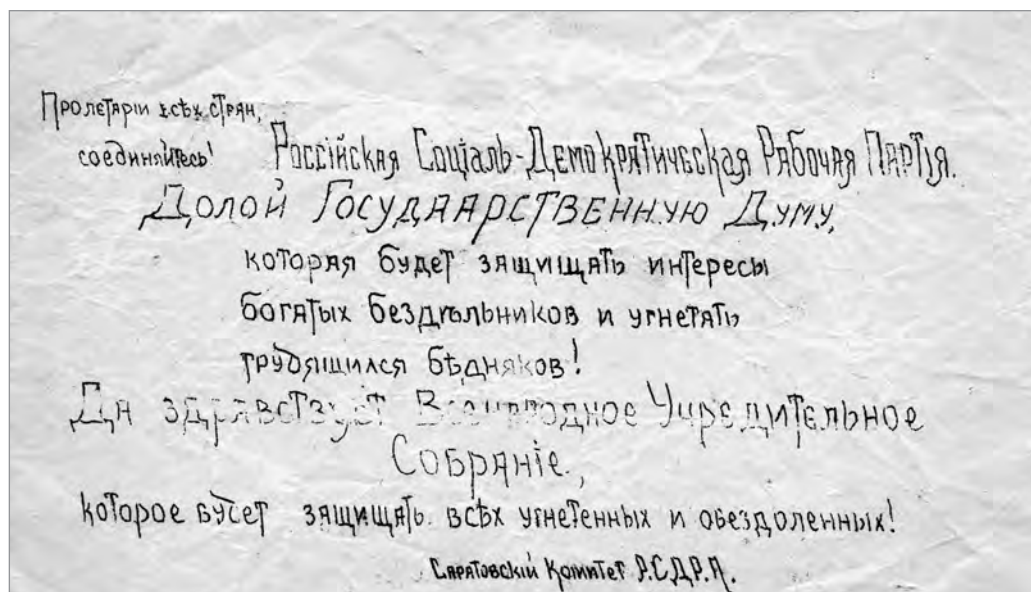 Пролетаріи всѣх стран,
соединяйтесь! Россійская Соціаль-Демократическая Рабочая Партія.
Долой Государственную Думу,
которая будет защищать интересы
богатых бездѣльников и угнетать
трудящихся бѣдняков!
Да здравствует Всенародное Учредительное
Собраніе,
которое будет защищать всѣх угнетенных и обездоленных!
Саратовскій Комитет Р.С.Д.Р.П.